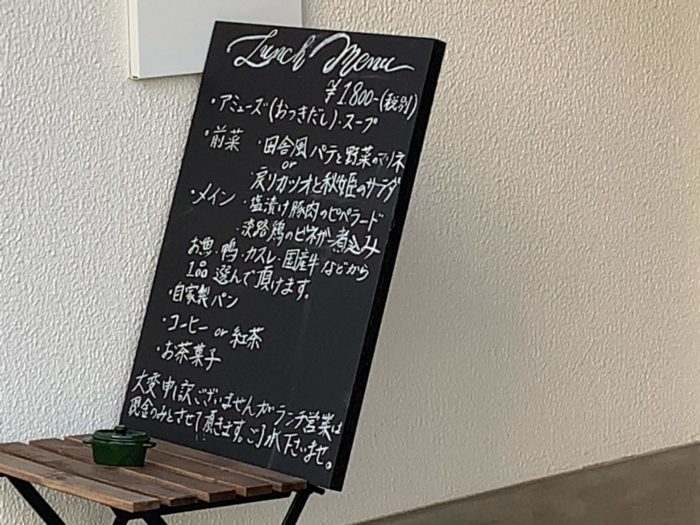 Lunch Menu
¥1.800-(税別)
・アミューズ(おつきだし)・スープ
・前菜 ・田舎風パテと野菜のマリネ
or
戻りカツオと秋姫のサラダ
・メイン ・塩漬け豚肉のピペラード
・淡路鶏のビネガー煮込み
お魚・鴨・カスレ・国産牛などから
1品選んで頂けます。
・自家製パン
・コーヒー or 紅茶
・お茶菓子
大変申し訳ございませんがランチ営業は
現金のみとさせて頂きます。ご了承下さいませ。